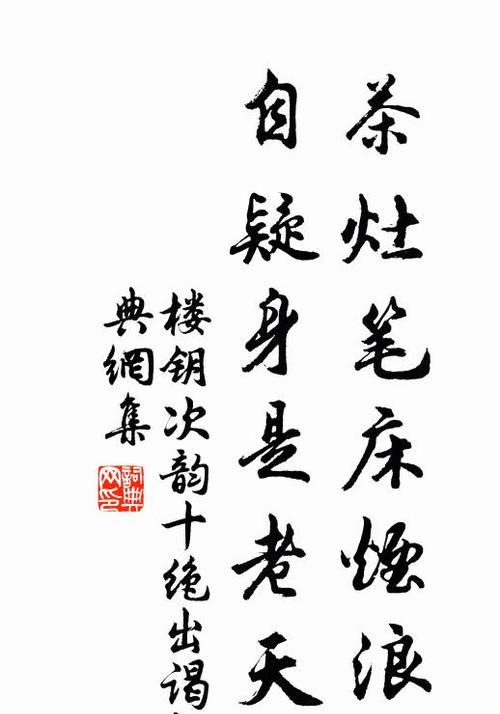 茶灶笔床煙浪
自疑身是老天
楼钥次韵十绝出谒
典網集
詞典网印